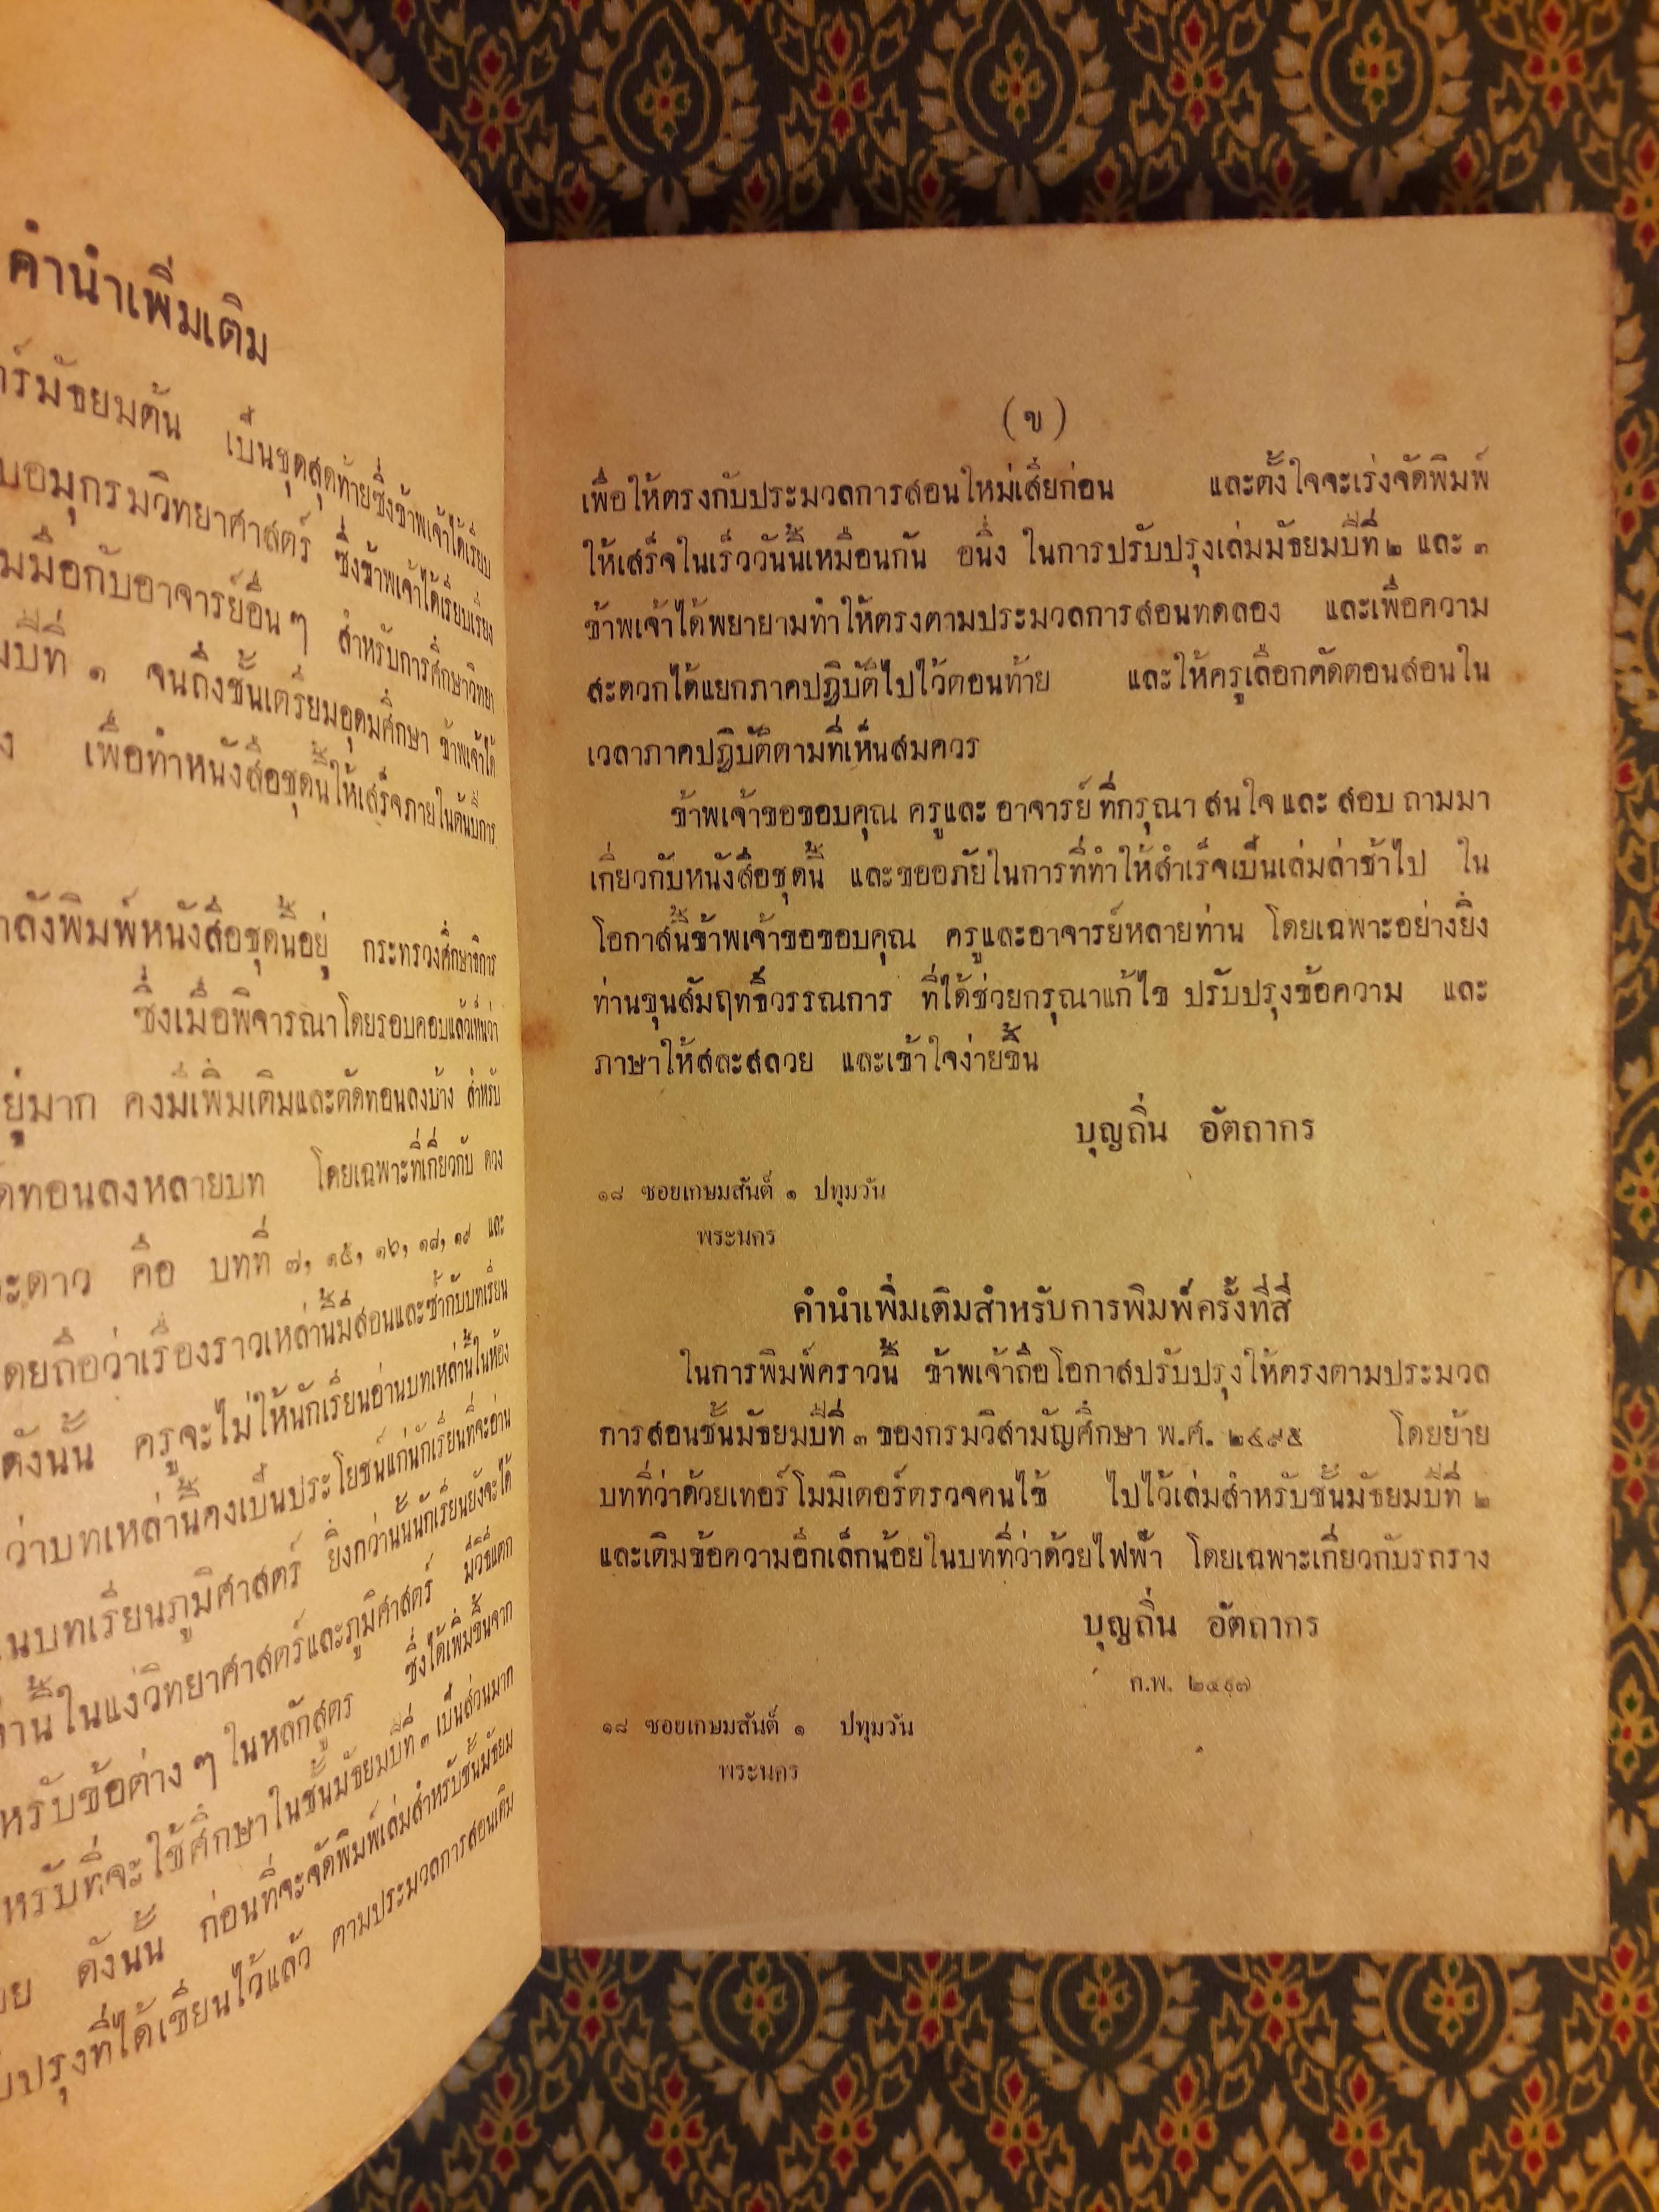 คำนำเพิ่มเติม
มัธยมต้น เป็นชุดสุดท้ายซึ่งข้าพเจ้าได้เรียบ
อมุกรมวิทยาศาสตร์ ซึ่งข้าพเจ้าได้เรียบเรียง
มือกับอาจารย์อื่น ๆ สำหรับการศึกษาวิทยา
ปีที่ ๑ จนถึงชั้นเตรียมอุดมศึกษา ข้าพเจ้าได้
เพื่อทำหนังสือชุดนี้ให้เสร็จภายในต้นปีการ
ลังพิมพ์หนังสือชุดนี้อยู่ กระทรวงศึกษาธิการ
ซึ่งเมื่อพิจารณาโดยรอบคอบแล้วเห็นว่า
มาก คงมีเพิ่มเติมและตัดทอนลงบ้าง สำหรับ
ทอนลงหลายบท โดยเฉพาะที่เกี่ยวกับ ดวง
ดาว คือ บทที่ ๗, ๑๕, ๑๖, ๑๘, ๑๙ และ
ถือว่าเรื่องราวเหล่านี้มีสอนและซ้ำกับบทเรียน
ดังนั้น ครูจะไม่ให้นักเรียนอ่านบทเหล่านี้ในห้อง
ว่าบทเหล่านี้คงเป็นประโยชน์แก่นักเรียนที่จะอ่าน
บทเรียนภูมิศาสตร์ ยิ่งกว่านั้นนักเรียนยังจะได้
นี้ในแง่วิทยาศาสตร์และภูมิศาสตร์ มีวิธีแตก
หรับข้อต่าง ๆ ในหลักสูตร ซึ่งได้เพิ่มขึ้นจาก
หรับที่จะใช้ศึกษาในชั้นมัธยมปีที่ ๓ เป็นส่วนมาก
ดังนั้น ก่อนที่จะจัดพิมพ์เล่มสำหรับชั้นมัธยม
ปรุงที่ได้เขียนไว้แล้ว ตามประมวลการสอนเดิม
(ข)
เพื่อให้ตรงกับประมวลการสอนใหม่เสียก่อน และตั้งใจจะเร่งจัดพิมพ์
ให้เสร็จในเร็ววันนี้เหมือนกัน อนึ่ง ในการปรับปรุงเล่มมัธยมปีที่ ๒ และ ๓
ข้าพเจ้าได้พยายามทำให้ตรงตามประมวลการสอนทดลอง และเพื่อความ
สะดวกได้แยกภาคปฏิบัติไปไว้ตอนท้าย และให้ครูเลือกตัดตอนสอนใน
เวลาภาคปฏิบัติตามที่เห็นสมควร
ข้าพเจ้าขอขอบคุณ ครูและ อาจารย์ ที่กรุณา สนใจ และ สอบ ถามมา
เกี่ยวกับหนังสือชุดนี้ และขออภัยในการที่ทำให้สำเร็จเป็นเล่มล่าช้าไป ใน
โอกาสนี้ข้าพเจ้าขอขอบคุณ ครูและอาจารย์หลายท่าน โดยเฉพาะอย่างยิ่ง
ท่านขุนสัมฤทธิ์วรรณการ ที่ได้ช่วยกรุณาแก้ไข ปรับปรุงข้อความ และ
ภาษาให้สละสลวย และเข้าใจง่ายขึ้น
บุญถิ่น อัตถากร
๑๘ ซอยเกษมสันต์ ๑ ปทุมวัน
พระนคร
คำนำเพิ่มเติมสำหรับการพิมพ์ครั้งที่สี่
ในการพิมพ์คราวนี้ ข้าพเจ้าถือโอกาสปรับปรุงให้ตรงตามประมวล
การสอนชั้นมัธยมปีที่ ๓ ของกรมวิสามัญศึกษา พ.ศ. ๒๔๙๕ โดยย้าย
บทที่ว่าด้วยเทอร์โมมิเตอร์ตรวจคนไข้ ไปไว้เล่มสำหรับชั้นมัธยมปีที่ ๒
และเติมข้อความอีกเล็กน้อยในบทที่ว่าด้วยไฟฟ้า โดยเฉพาะเกี่ยวกับรถราง
บุญถิ่น อัตถากร
ก.พ. ๒๔๙๗
๑๘ ซอยเกษมสันต์ ๑ ปทุมวัน
พระนคร